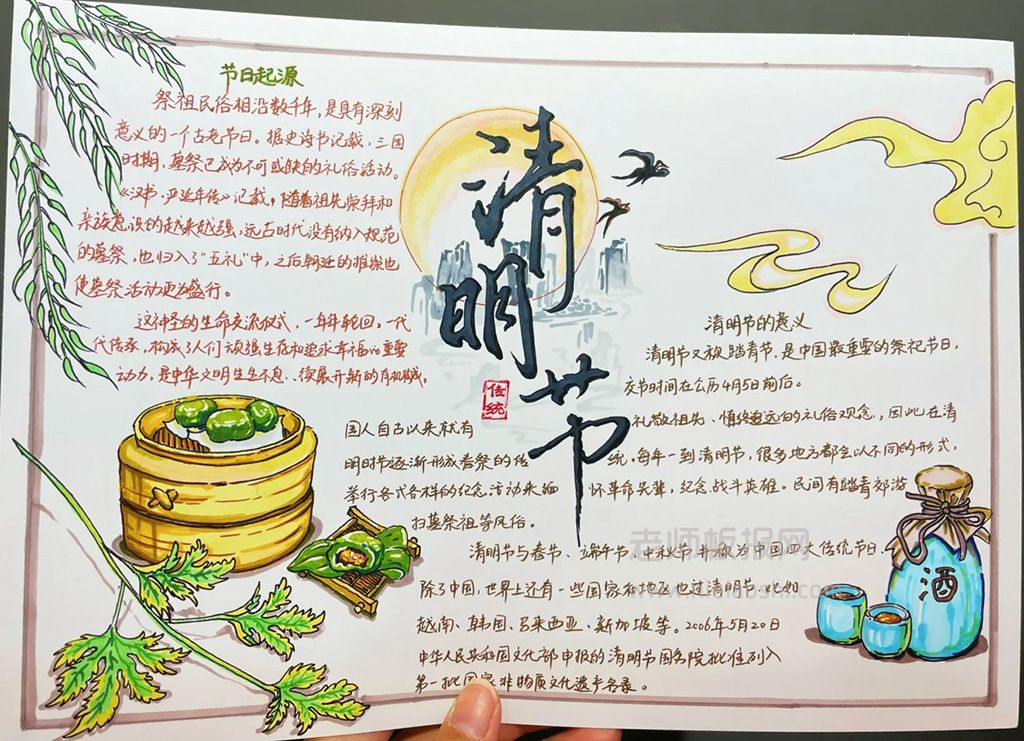 节日起源
祭祖民俗相沿数千年，是具有深刻
意义的一个古老节日。据史诗书记载，三国
时期，墓祭已成为不可或缺的礼俗活动。
《汉书·严延年传》记载，随着祖先崇拜和
亲族意识的越来越强，远古时代没有纳入规范
的墓祭，也归入了“五礼”中，之后朝廷的推崇也
使墓祭活动更为盛行。
这神圣的生命交流仪式，一年年轮回，一代
代传承，构成了人们顽强生存和追求幸福的重要
动力，是中华文明生生不息、续展开新的有机构成。
清明节
传统
清明节的意义
清明节又称踏青节，是中国最重要的祭祀节日，
交节时间在公历4月5日前后。
国人自古以来就有 礼敬祖先、慎终追远的礼俗观念，因此在清
明时节逐渐形成春祭的传 统，每年一到清明节，很多地方都会以不同的形式，
举行各式各样的纪念活动来缅 怀革命先辈，纪念战斗英雄。民间有踏青郊游
扫墓祭祖等风俗。
清明节与春节、端午节、中秋节并称为中国四大传统节日。
除了中国，世界上还有一些国家和地区也过清明节，比如
越南、韩国、马来西亚、新加坡等。2006年5月20日
中华人民共和国文化部申报的清明节国务院批准列入
第一批国家非物质文化遗产名录。
酒
老师板报网